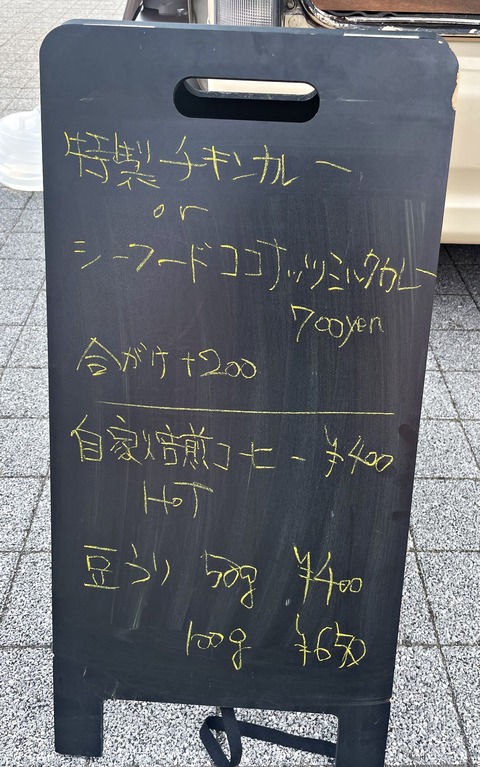 特製チキンカレー
or
シーフードココナッツミルクカレー
700yen
合がけ +200
自家焙煎コーヒー ¥400
HOT
豆うり 50g ¥400
100g ¥650